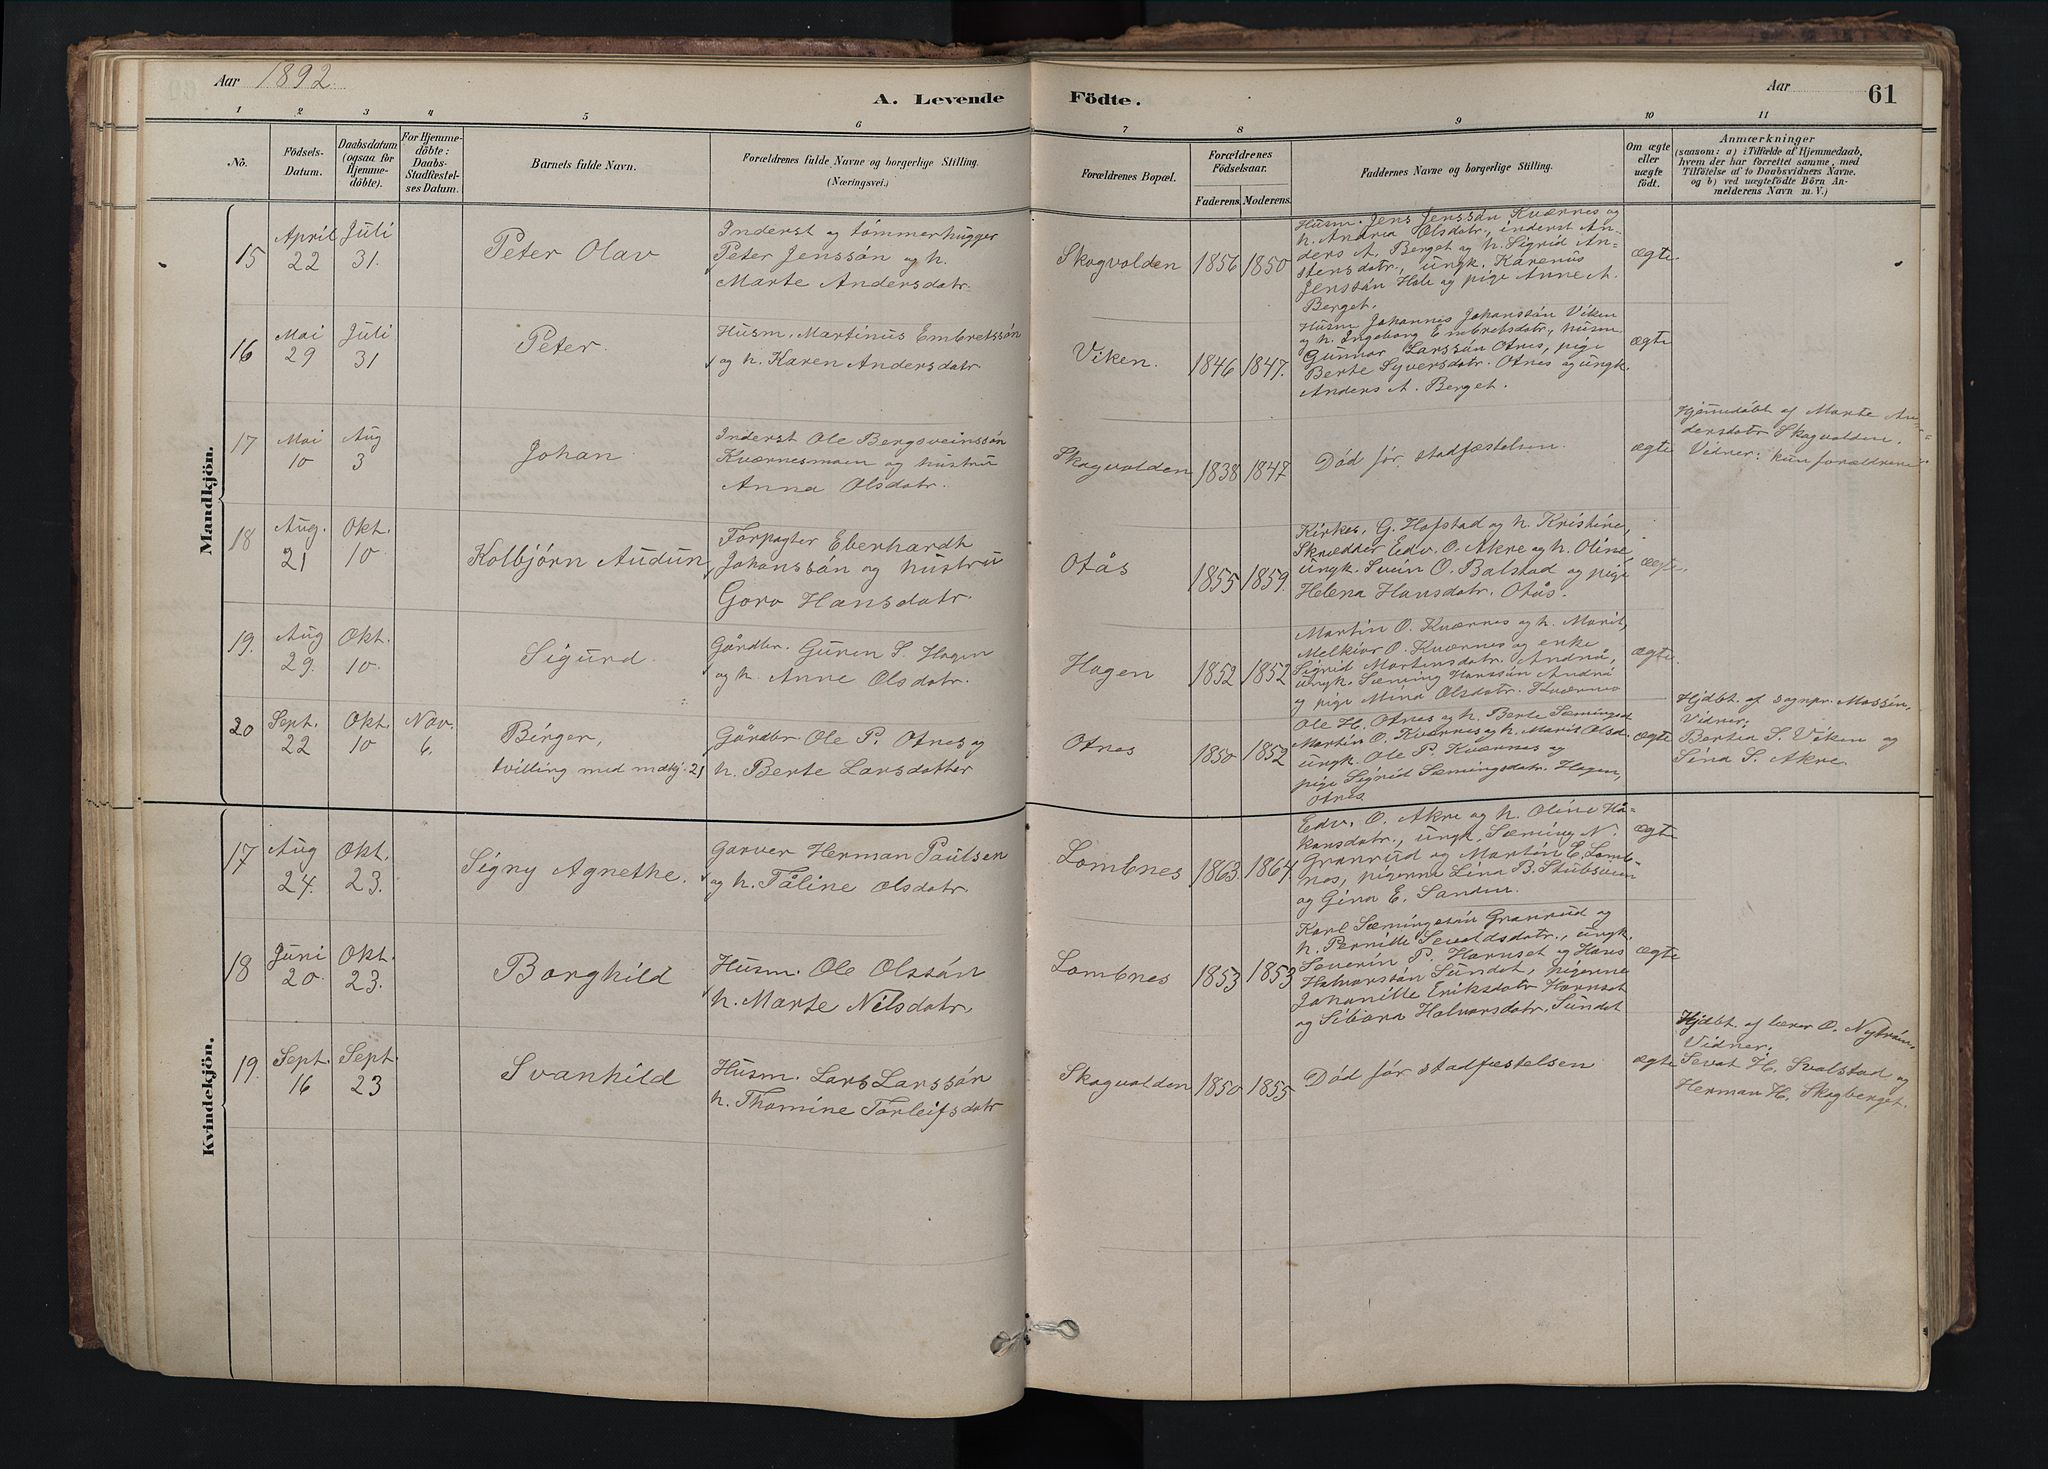 Aar 1892
A. Levende Födte.
Aar
61
1 2 3 4 5 6 7 8 9 10 11
No.
Födsels-
Datum.
Daabsdatum
(ogsaa for
Hjemme-
döbte).
For Hjemme-
döbte:
Daabs-
Stadfæstel-
ses Datum.
Barnets fulde Navn.
Forældrenes fulde Navne og borgerlige Stilling.
(Næringsvei.)
Forældrenes Bopæl.
Forældrenes
Födselsaar.
Faderens. Moderens.
Faddernes Navne og borgerlige Stilling.
Om ægte
eller
uægte
födt.
Anmærkninger
(saasom: a) i Tilfælde af Hjemmedaab,
hvem der har forrettet samme, med
Tilföielse af to Daabsvidners Navne.
og b) ved uægtefödte Börn An-
melderens Navn m. V.)
Mandkjön.
15
April
22
Juli
31.
Peter Olav
Inderst og tömmerhugger
Peter Jenssön og h.
Marte Andersdatr.
Skogvolden
1856 1850
Husm. Jens Jenssön Kværnes og
h. Andrea Olsdatr., inderst An-
ders A. Berget og h. Sigrid An-
stensdatr., ungk. Karenus
Jenssön Hole og pige Anne A.
Berget.
ægte
16
Mai
29
Juli
31
Peter.
Husm. Martinus Embretssön
og h. Karen Andersdatr.
Viken.
1846 1847.
Husm. Johannes Johanssön Viken
og h. Ingeborg Embretsdatr., husm
Gunnar Larssön Otnes, pige
Berte Syversdatr. Otnes og ungk.
Anders A. Berget.
ægte
17
Mai
10
Aug
3
Johan
Inderst Ole Bergsveinssön
Kværnesmoen og hustru
Anna Olsdatr.
Skogvolden
1838 1847
Död för stadfæstelsen.
ægte
Hjemdöbt af Marte An-
dersdatr Skogvolden.
Vidner: kun forældrene
18
Aug.
21
Okt.
10
Kolbjörn Audun
Forpagter Eberhardt
Johanssön og hustru
Goro Hansdatr.
Otås
1855 1859.
Kirkes. G. Hofstad og h. Kristine,
Skrædder Edv. O. Akre og h. Oline,
ungk. Svein O. Balstad og pige
Helena Hansdatr. Otås.
ægte.
19.
Aug
29.
Okt.
10.
Sigurd
Gårdbr. Guren S. Hagen
og h. Anne Olsdatr.
Hagen
1852 1852
Martin O. Kværnes og h. Marit,
Melkior O. Kværnes og enke
Sigrid Martinsdatr. Andrå,
ungk. Sæming Hanssön Andrå
og pige Mina Olsdatr. Kværnes
ægte.
20
Sept.
22
Okt
10
Nov.
6.
Birger,
tvilling med mdkj. 21
Gårdbr Ole P. Otnes og
h. Berte Larsdatter
Otnes
1850 1852
Ole H. Otnes og h. Berte Sæmingsd
Martin O. Kværnes og h. Marit Olsd.
ungk. Ole P. Kværnes og
pige Sigrid Sæmingsdatr. Hagen,
Otnes
ægte
Hjdbt. af sognpr. Mossin,
Vidner:
Bertia S. Viken og
Sina S. Akre.
Kvindekjön.
17
Aug
24.
Okt.
23.
Signy Agnethe.
Garver Herman Paulsen
og h. Tåline Olsdatr.
Lombnes
1863 1864
Edv. O. Akre og h. Oline Hå-
konsdatr., ungk. Sæming N.
Granrud og Martin E. Lomb-
nes, pigerne Lina B. Stubsveen
og Gina E. Sanden.
ægte
18
Juni
20.
Okt.
23.
Borghild
Husm. Ole Olssön
h. Marte Nilsdatr.
Lombnes
1853 1853
Karl Sæmingssön Granrud og
h. Pernille Sevaldsdatr., ungk.
Severin P. Hornset og Hans
Halvorssön Sundet, pigerne
Johanille Eriksdatr Hornset
og Sibora Halvorsdatr. Sundet
ægte
19.
Sept.
16
Sept.
23
Svanhild
Husm. Lars Larssön
h. Thomine Torleifsdatr
Skogvolden
1850 1855
Död för stadfæstelsen
ægte
Hjdbt. af lærer O. Nytröen,
Vidner:
Sevat H. Svalstad og
Herman H. Skogberget.